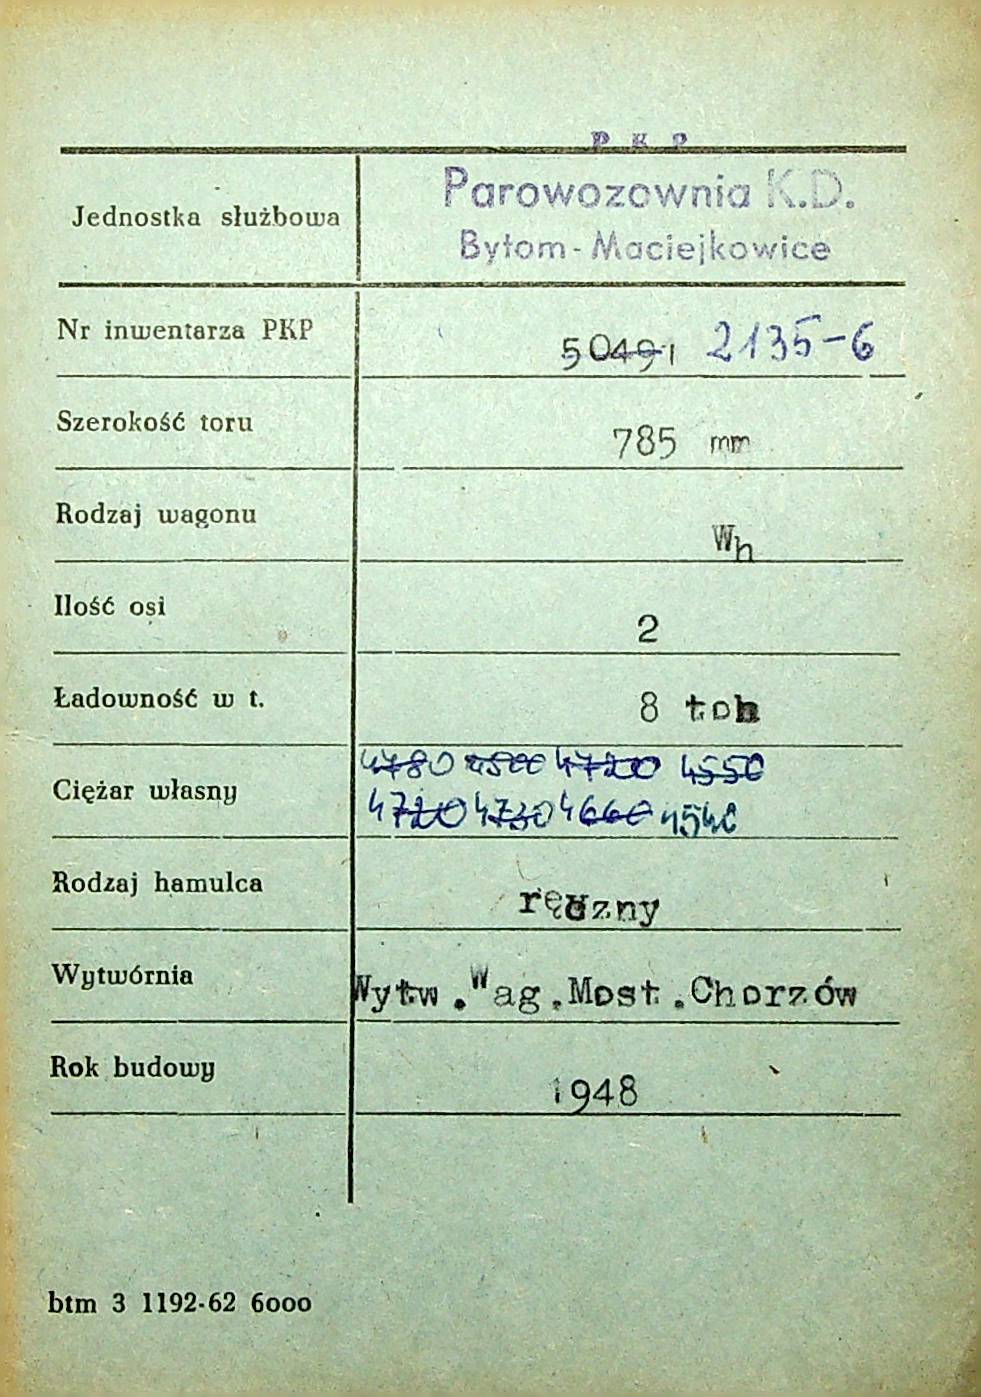 P K P
Jednostka służbowa Parowozownia K.D.
Bytom-Maciejkowice
Nr inwentarza PKP 50491 2135-6
Szerokość toru 785 mm
Rodzaj wagonu Wh
Ilość osi 2
Ładowność w t. 8 ton
4780 4500 4720 4550
Ciężar własny 4720 4730 4660 4540
Rodzaj hamulca ręczny
Wytwórnia Wytw.Wag.Most.Chorzów
Rok budowy 1948
btm 3 1192-62 6000